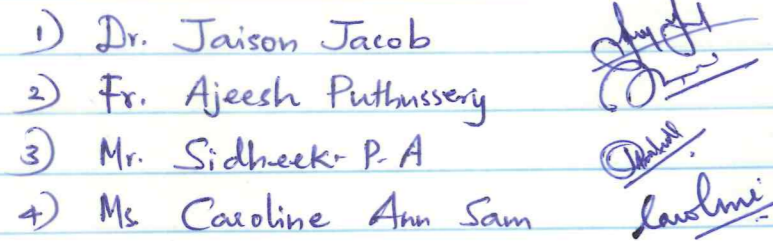 1) Dr. Jaison Jacob
2) Fr. Ajeesh Puthussery
3) Mr. Sidheek P-A
4) Ms. Caroline Ann Sam Caroline